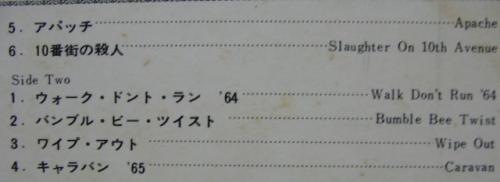 5. アパッチ Apache
6. 10番街の殺人 Slaughter On 10th Avenue
Side Two
1. ウォーク・ドント・ラン '64 Walk Don't Run '64
2. バンブル・ビー・ツイスト Bumble Bee Twist
3. ワイプ・アウト Wipe Out
4. キャラバン '65 Caravan